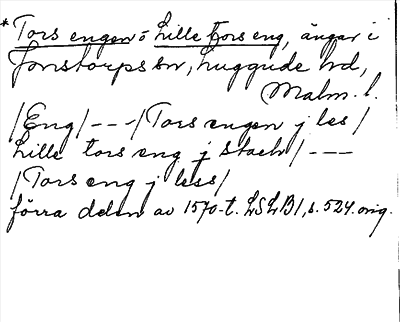 * Tors engen o Lille Tors eng, ängar i
Jonstorps sn, Luggude hd,
Malm. l.
/Eng/ --- /Tors engen j les/
Lille tors eng j staeh/ ---
/Tors eng j less/
förra delen av 1570-t. LSLB1, s. 524. orig.